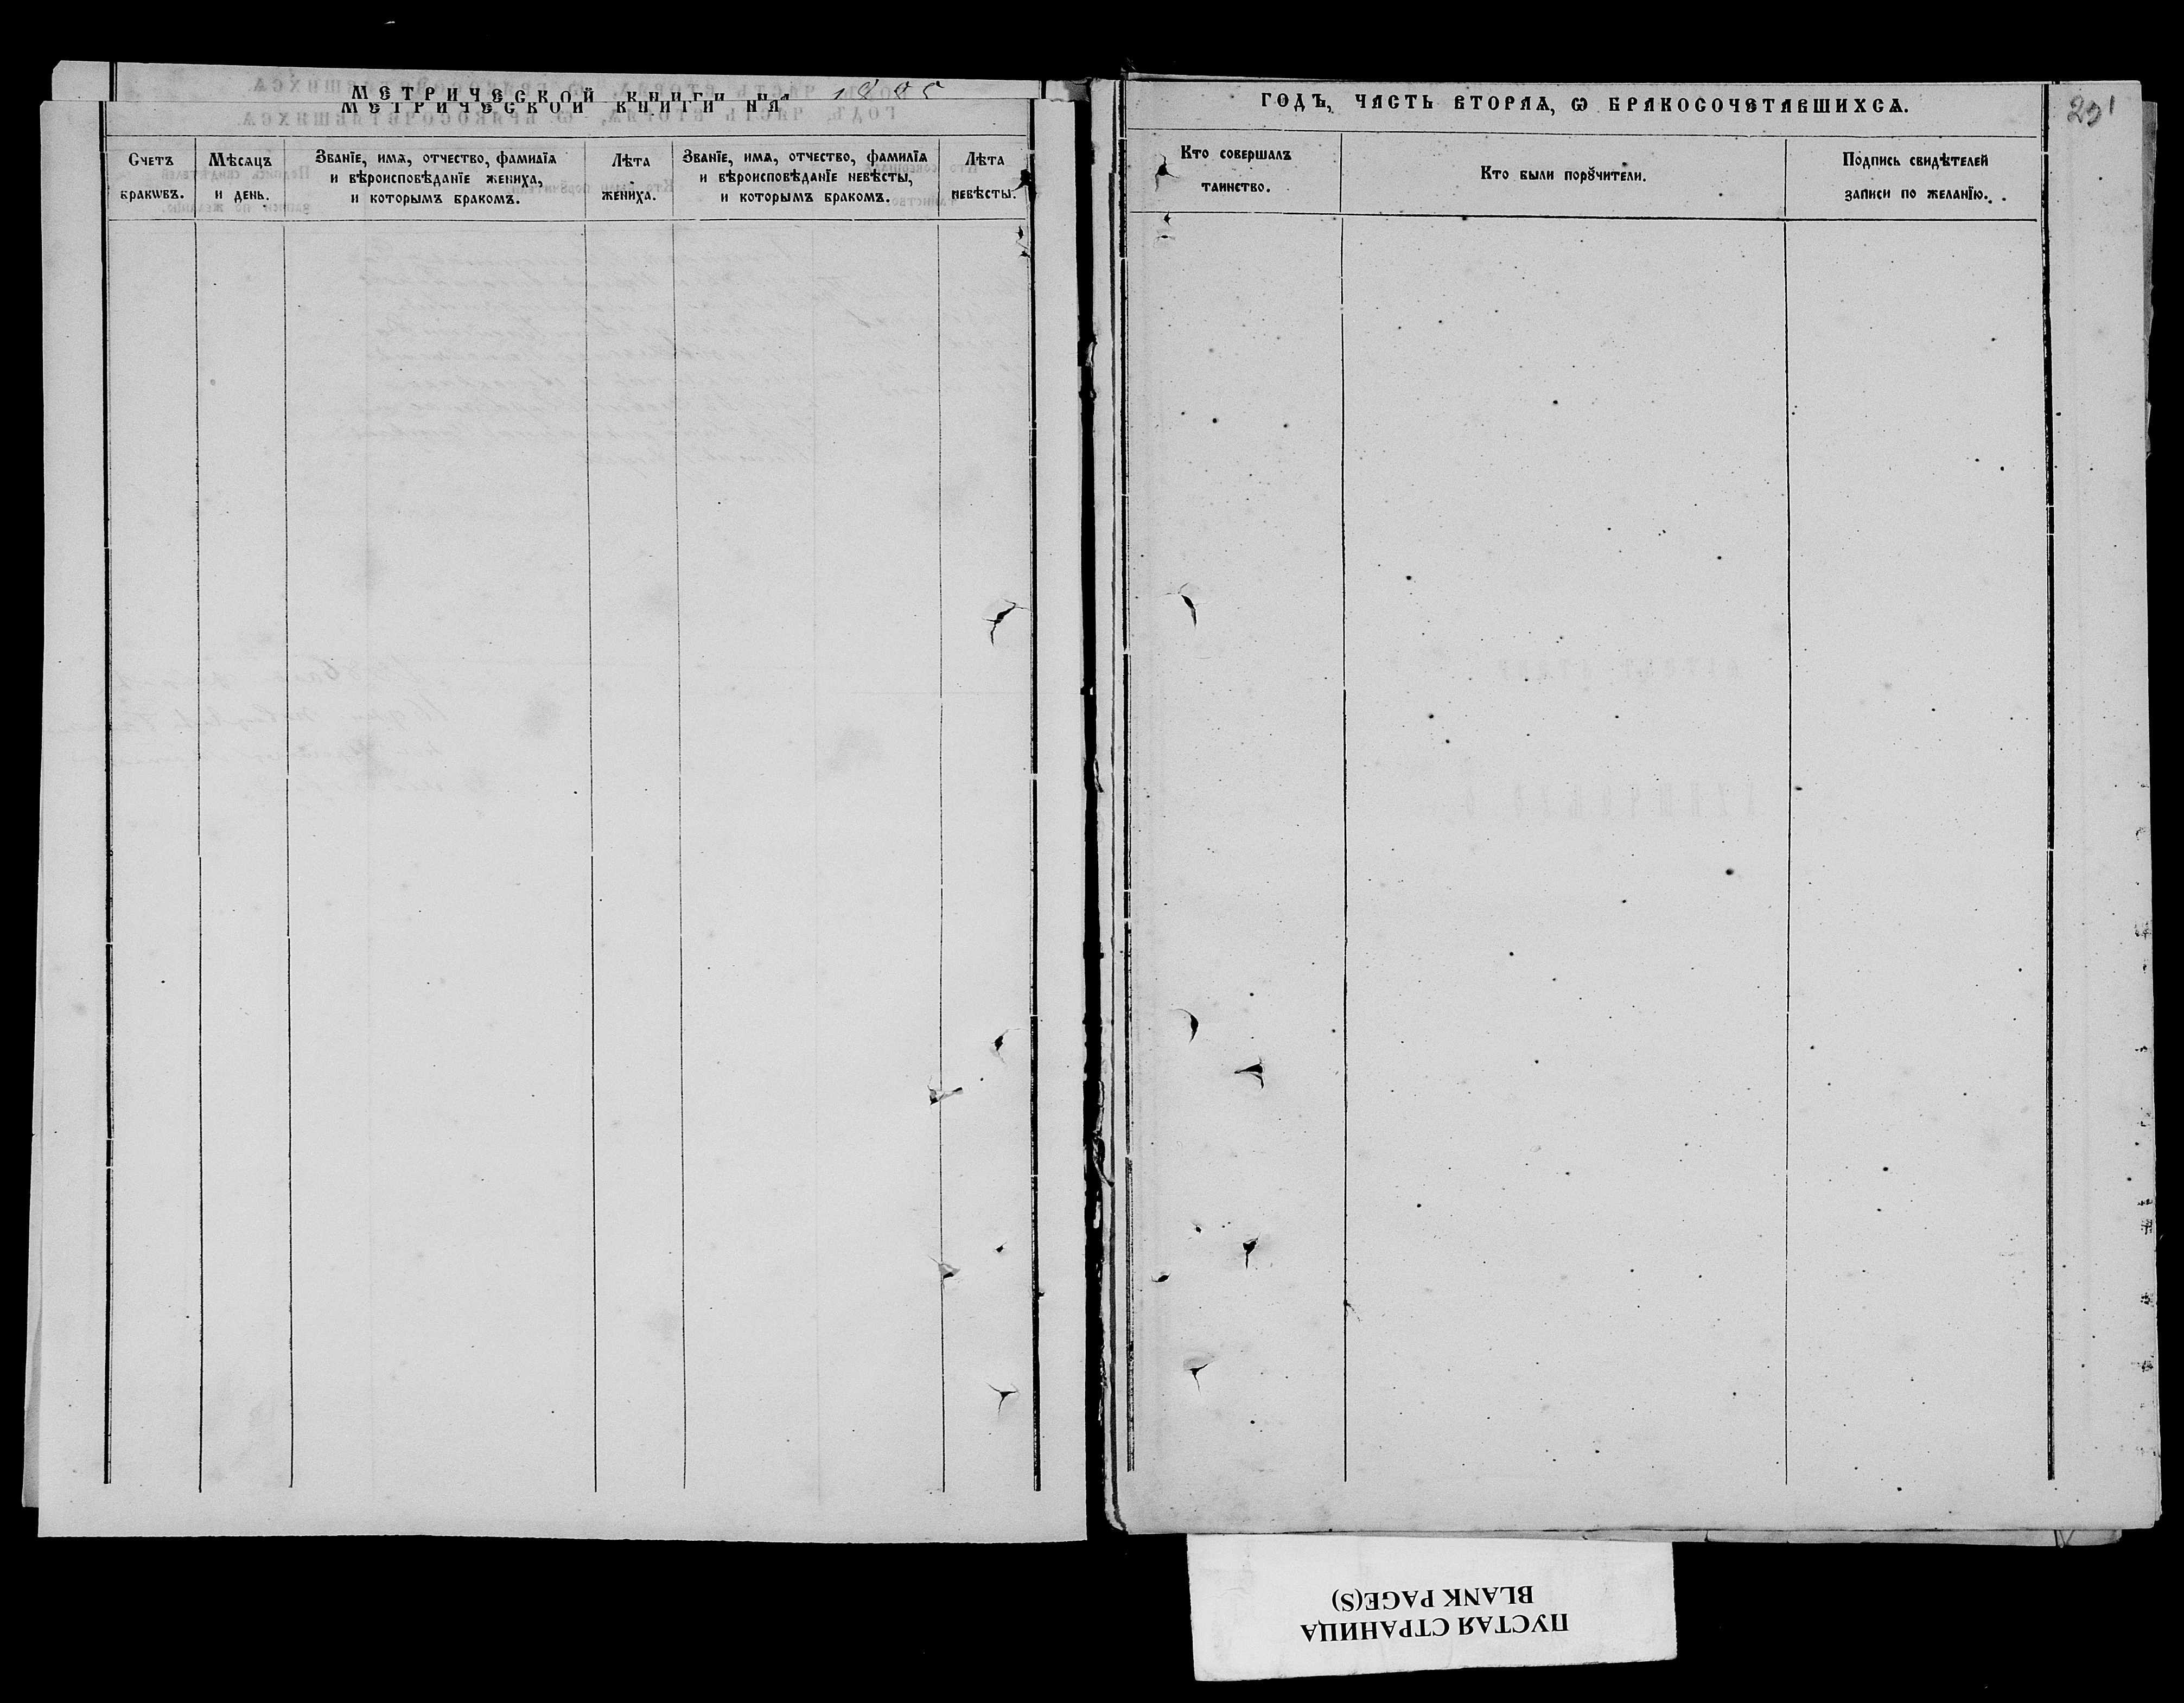 МЕТРИЧЕСКОЙ КНИГИ НА
МЕТРИЧЕСКОЙ КНИГИ НА
Счетъ
бракѡвъ.
Мѣсяцъ
и день.
Званїе, имѧ, отчество, фамилїѧ
и вѣроисповѣданїе жениха,
и которымъ бракомъ.
Лѣта
жениха.
Званїе, имѧ, отчество, фамилїѧ
и вѣроисповѣданїе невѣсты,
и которымъ бракомъ.
Лѣта
невѣсты.
ГОДЪ, ЧАСТЬ ВТОРАѦ, Ѡ БРАКОСОЧЕТАВШИХСѦ.
Кто совершалъ
таинство.
Кто были порꙋчители.
Подпись свидѣтелей
записи по желанїю.
ПУСТАЯ СТРАНИЦА
BLANK PAGE(S)